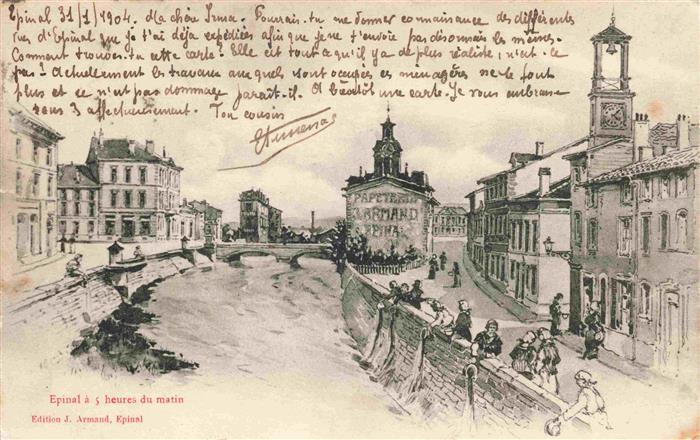 Epinal 31/1/1904. Ma chère Irma. Pourrais-tu me donner connaissance des différentes
vues d'Epinal que je t'ai déjà expédiées afin que je ne t'envoie pas désormais les mêmes.
Comment trouves-tu cette carte? Elle est tout ce qu'il y a de plus réaliste, n'est-ce
pas? Actuellement les travaux auxquels sont occupées ces ménagères ne se font
plus et ce n'est pas dommage paraît-il. A bientôt une carte. Je vous embrasse
tous 3 affectueusement. Ton cousin
PAPETERIE
J. ARMAND
EPINAL
Epinal à 5 heures du matin
Edition J. Armand, Epinal